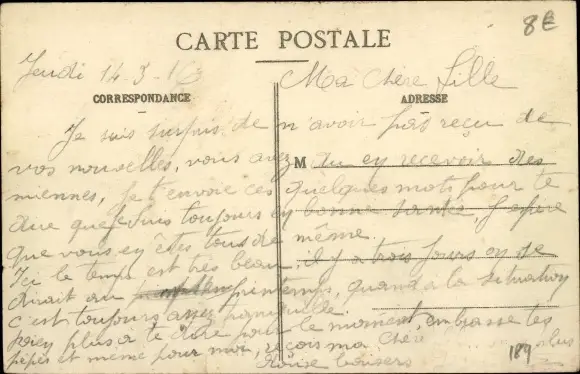 8€
CARTE POSTALE
Jeudi 14-3-16 Ma chère fille
CORRESPONDANCE
ADRESSE
Je suis surpris de n'avoir pas reçu de
vos nouvelles, vous avez M du ey recevoir des
miennes, je t'envoie ces quelques mots pour te
dire que je suis toujours ey bonne santé, j'espère
que vous ey êtes tous de même.
Ici le temps est très beau, il y a trois jours ey se
dirait au printemps, quand a la situation
c'est toujours assez tranquille.
Riey plus a te dire pour le moment, embrasse tes
pépés et même pour moi, reçois ma chère
plus
bousers
189